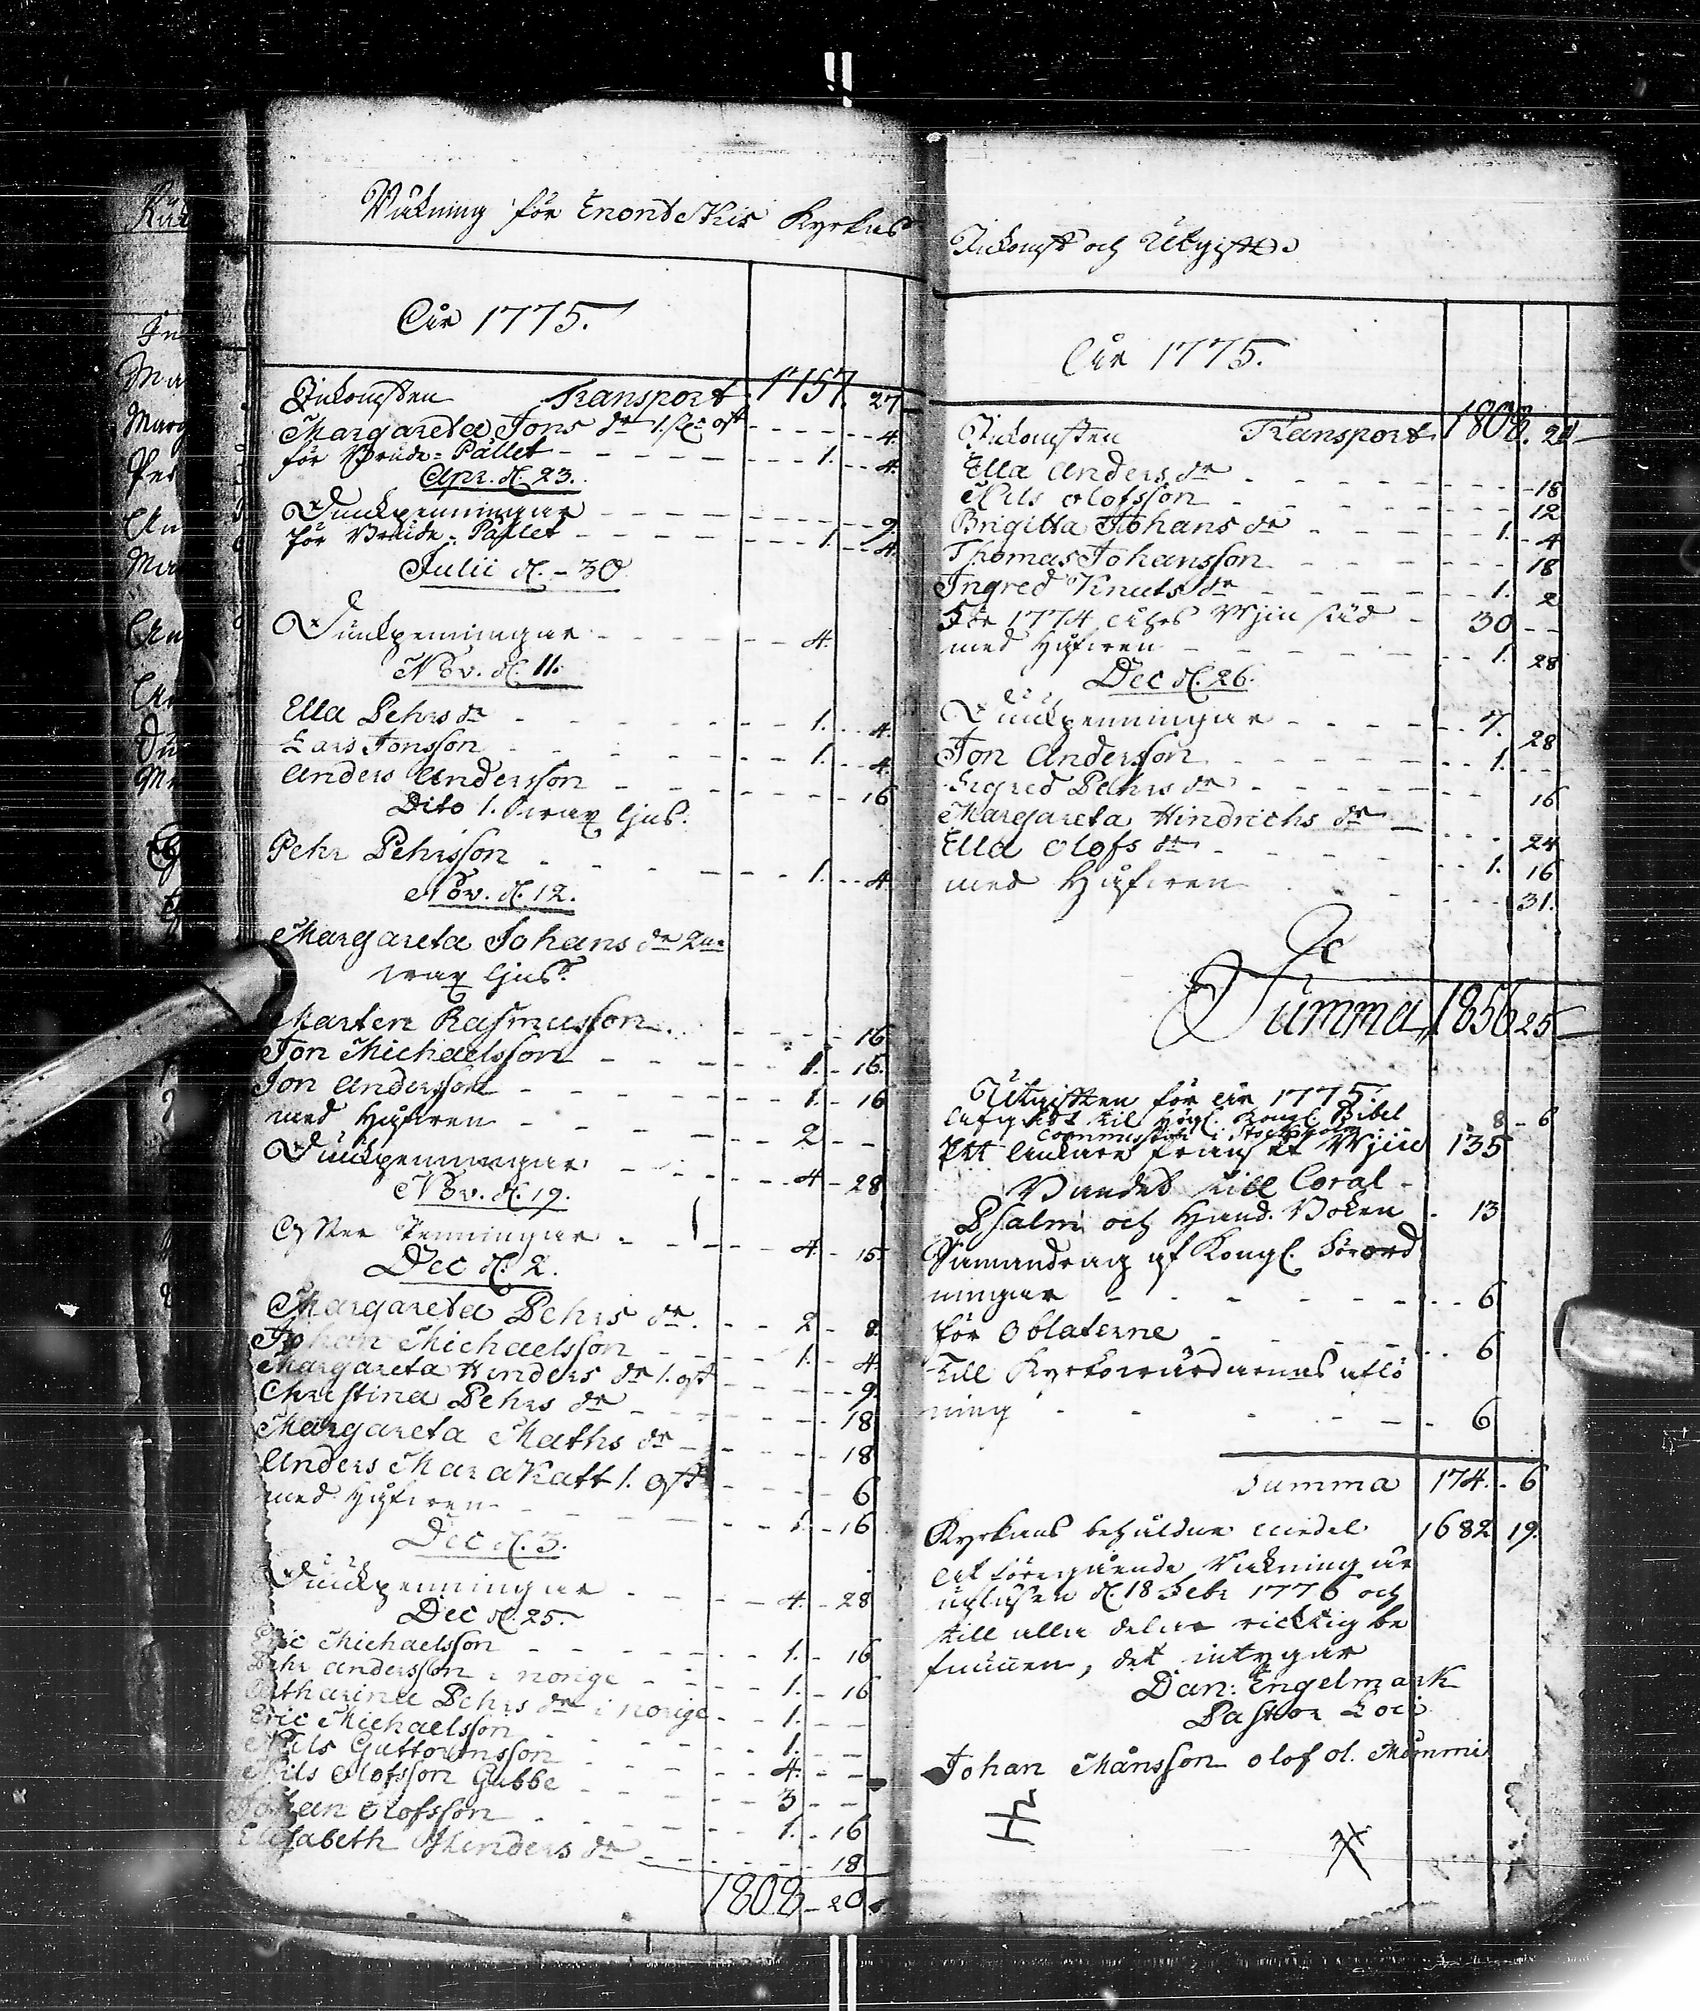 Räkning för Enontekis Kyrkas
År 1775.
Inkomsten Transport 1757. 27
Margareta Jons dr 1. st ost 4.
för Brude-Pallet 1. 4.
Apr. d. 23.
Tunkpenningar 9.
för Brude-Pallet 1. 4.
Julii d. 30
Tunkpenningar 4.
Nov. d. 11.
Ella Pehrs dr 1. 4.
Lars Jonsson 1. 4.
Anders Andersson 16
Dito 1. wax ljus.
Pehr Pehrsson 1. 4.
Nov. d. 12.
Margareta Johans dr
wax ljus
Marten Rasmusson 16
Jon Michaelsson 1. 16.
Jon Andersson 1. 16
med Håfwen 2
Tunkpenningar 4 28
Nov. d. 19.
Penningar 4. 15
Dec d. 2.
Margareta Pehrs dr 2 8.
Johan Michaelsson 1. 4
Margareta Hinders dr 1. ost 9.
Christina Pehrs dr 18
Margareta Mathis dr 18
Anders Marakatt 1. ost 6
med Håfwen 1. 16
Dec d. 3.
Tunkpenningar 4. 28
Dec d. 25.
Eric Michaelsson 1. 16
Pehr Andersson i norige 1. 16
Catharina Pehrs dr i norige 1.
Eric Michaelsson 1.
Nils Guttormsson 4.
Nils Olofsson Gubbe 3
Johan Olofsson 1. 16
Elisabeth Hinders dr 18
1808 20
Inkomst och Utgifter
År 1775.
Inkomsten Transport 1808. 20
Ella Anders dr 18
Nils Olofsson 12
Brigitta Johans dr 1. 4
Thomas Johansson 18
Ingred Knuts dr 1. 2
För 1774 åhrs Wjin säd 30
med Håfwen 1. 28
Dec d. 26.
Tunkpenningar 7. 28
Jon Andersson 1.
Sigred Pehrs dr 16
Margareta Hindrichs dr 24
Ella Olofs dr 1. 16
med Håfwen 31.
Summa 1856 25
Utgiften för År 1775.
till Högl. Kongl. Bibel 8 6
Commission i Stockholm
Ett Ankare franskt Wjin 135
Bandet till Coral
Psalm och Hand. Boken 13
Samandrag af Kongl. Förord
ningar 6
för Oblaterne 6
Till Kyrkowärdarnas aflö
ning 6
Summa 174. 6
Kyrkans behåldna medel 1682 19.
At föregående Räkning är
upläsen d. 18 Febr 1776 och
till alla delar ricktig be
funnen, det intygar
Dan: Engelmark
Pastor Loci
Johan Månsson Olof Ol. Mommi